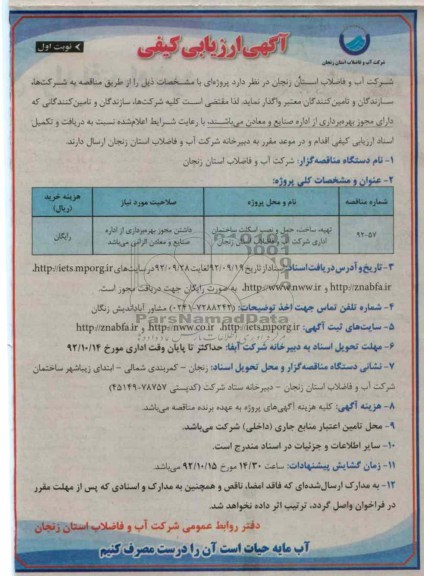 نوبت اول
آگهی ارزیابی کیفی
شرکت آب و فاضلاب استان زنجان
شرکت آب و فاضلاب استان زنجان در نظر دارد پروژه‌ای با مشخصات ذیل را از طریق مناقصه به شرکت‌ها،
سازندگان و تامین‌کنندگان معتبر واگذار نماید. لذا مقتضی است کلیه شرکت‌ها، سازندگان و تامین‌کنندگانی که
دارای مجوز بهره‌برداری از اداره صنایع و معادن می‌باشند، با رعایت شرایط اعلام‌شده نسبت به دریافت و تکمیل
اسناد ارزیابی کیفی اقدام و در موعد مقرر به دبیرخانه شرکت آب و فاضلاب استان زنجان ارسال دارند.
۱- نام دستگاه مناقصه‌گزار: شرکت آب و فاضلاب استان زنجان
۲- عنوان و مشخصات کلی پروژه:
شماره مناقصه	نام و محل پروژه	صلاحیت مورد نیاز	هزینه خرید (ریال)
۹۲-۵۷	تهیه، ساخت، حمل و نصب اسکلت ساختمان اداری شرکت آب و فاضلاب استان زنجان	داشتن مجوز بهره‌برداری از اداره صنایع و معادن الزامی می‌باشد	رایگان
۳- تاریخ و آدرس دریافت اسناد: اسناد از تاریخ ۹۲/۰۹/۱۹ لغایت ۹۲/۰۹/۲۸ در سایت‌های http://iets.mporg.ir،
http://znabfa.ir و http://www.nww.ir، به صورت رایگان جهت دریافت موجود است.
۴- شماره تلفن تماس جهت اخذ توضیحات: (۷۲۸۸۲۴۳-۰۲۴۱) مشاور آباداندیش زنگان
۵- سایت‌های ثبت آگهی: http://iets.mporg.ir، http://nww.co.ir و http://znabfa.ir
۶- مهلت تحویل اسناد به دبیرخانه شرکت آبفا: حداکثر تا پایان وقت اداری مورخ ۹۲/۱۰/۱۴
۷- نشانی دستگاه مناقصه‌گزار و محل تحویل اسناد: زنجان - کمربندی شمالی - ابتدای زیباشهر ساختمان
شرکت آب و فاضلاب استان زنجان - دبیرخانه ستاد شرکت (کدپستی ۷۸۷۵۷-۴۵۱۴۹)
۸- هزینه آگهی: کلیه هزینه آگهی‌های پروژه به عهده برنده مناقصه می‌باشد.
۹- محل تامین اعتبار منابع جاری (داخلی) شرکت می‌باشد.
۱۰- سایر اطلاعات و جزئیات در اسناد مندرج است.
۱۱- زمان گشایش پیشنهادات: ساعت ۱۴/۳۰ مورخ ۹۲/۱۰/۱۵ می‌باشد.
۱۲- به مدارک ارسال‌شده‌ای که فاقد امضا، ناقص و همچنین به مدارک و اسنادی که پس از مهلت مقرر
در فراخوان واصل گردد، ترتیب اثر داده نخواهد شد.
دفتر روابط عمومی شرکت آب و فاضلاب استان زنجان
آب مایه حیات است آن را درست مصرف کنیم
ParsNamadData